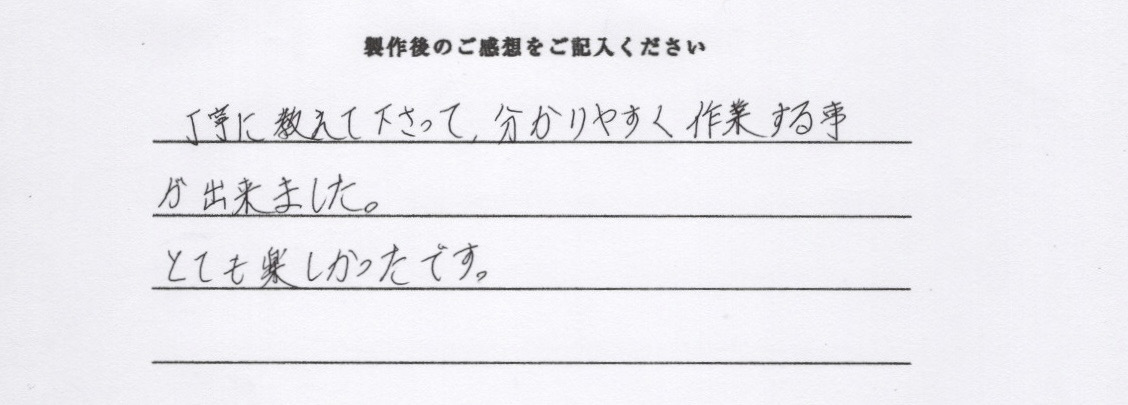 製作後のご感想をご記入ください
丁寧に教えて下さって、分かりやすく作業する事
が出来ました。
とても楽しかったです。